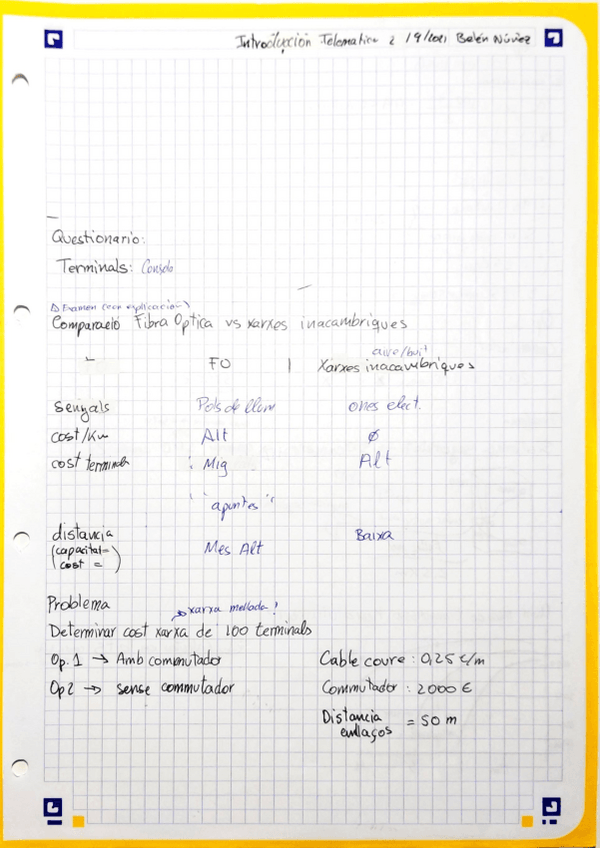 Introducción Telematica 2 /9/2021 Belén Núñez
Questionario:
Terminals: Consola
Examen (con explicación)
Comparació Fibra Optica vs xarxes inacambriques
aire/buit
FO | Xarxes inacambriques
senyals Pols de llum ones elect.
cost/Km Alt ∅
cost terminals : Mig Alt
" apuntes "
distancia Mes Alt Baixa
(capacitat=
cost = )
Problema
xarxa mellada!
Determinar cost xarxa de 100 terminals
Op. 1 → Amb commutador Cable coure : 0,25 €/m
Op2 → sense commutador Commutador : 2000 €
Distancia enllaços = 50 m